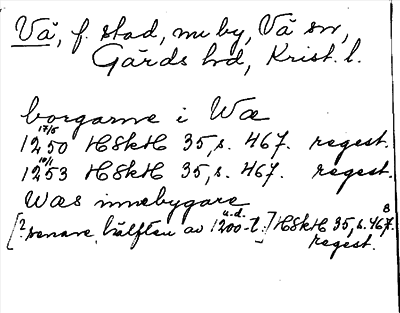 Vä, f. stad, nu by, Vä sn,
Gärds hd, Krist. l.
borgarne i Wæ
17/5
1250 HSkH 35, s. 467. regest.
10/1
1253 HSkH 35, s. 467. regest.
Wæs innebygare
[? senare hälften av 1200-t.] HSkH 35, s. 467.
u.d. 8
regest.